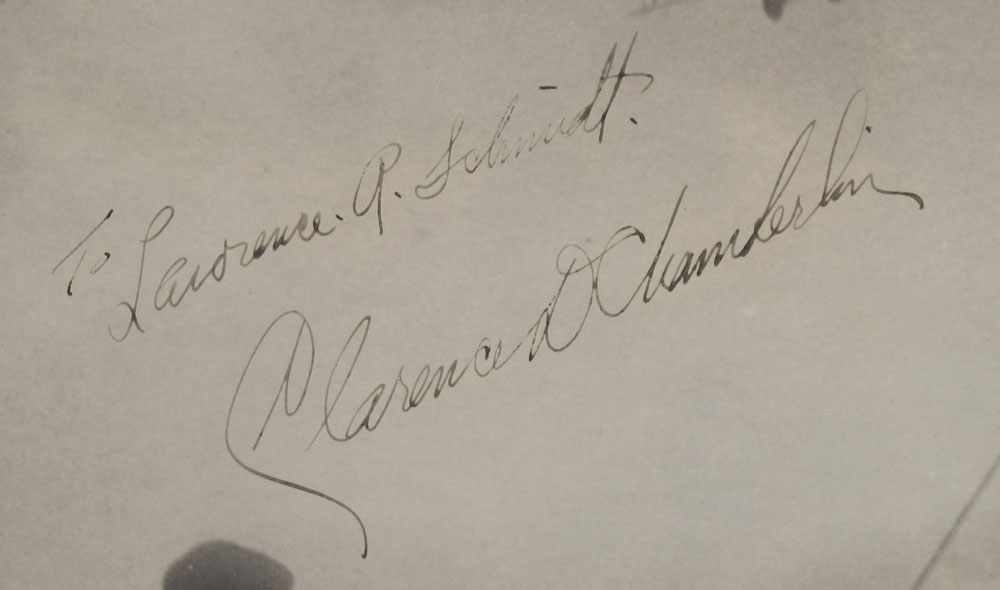 To Lawrence. A. Schmidt.
Clarence D Chamberlin